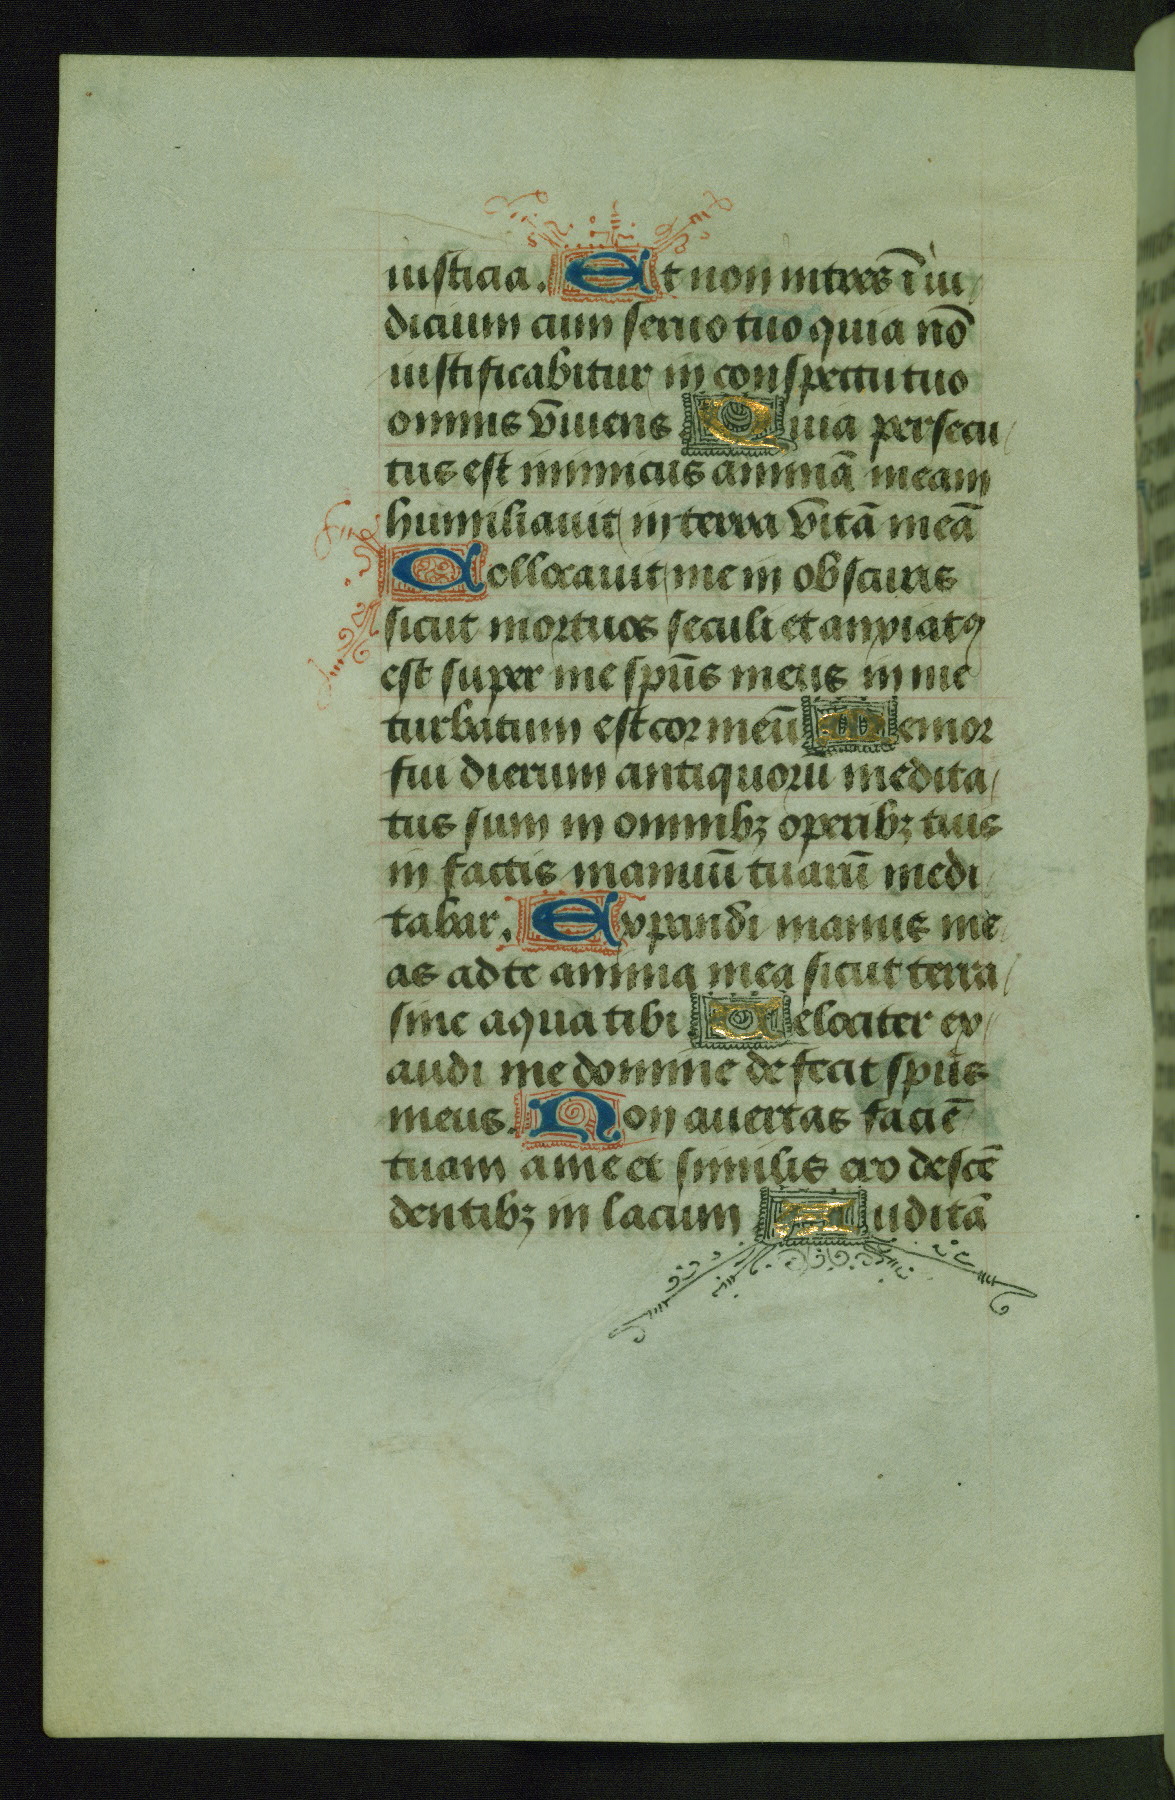 iusticia. Et non intres ī iu
dicium cum seruo tuo quia nō
iustificabitur in conspectu tuo
omnis viuens Quia persecu
tus est inimicus animā meam
humiliauit in terra vitā meā
Collocauit me in obscuris
sicut mortuos seculi et anxiatꝰ
est super me spūs meus in me
turbatum est cor meū Memor
fui dierum antiquorū medita
tus sum in omnibꝫ operibꝫ tuis
in factis manuū tuarū medi
tabar. Expandi manus me
as ad te anima mea sicut terra
sine aqua tibi Velociter ex
audi me domine defecit spūs
meus. Non auertas faciē
tuam a me et similis ero descē
dentibꝫ in lacum Auditā